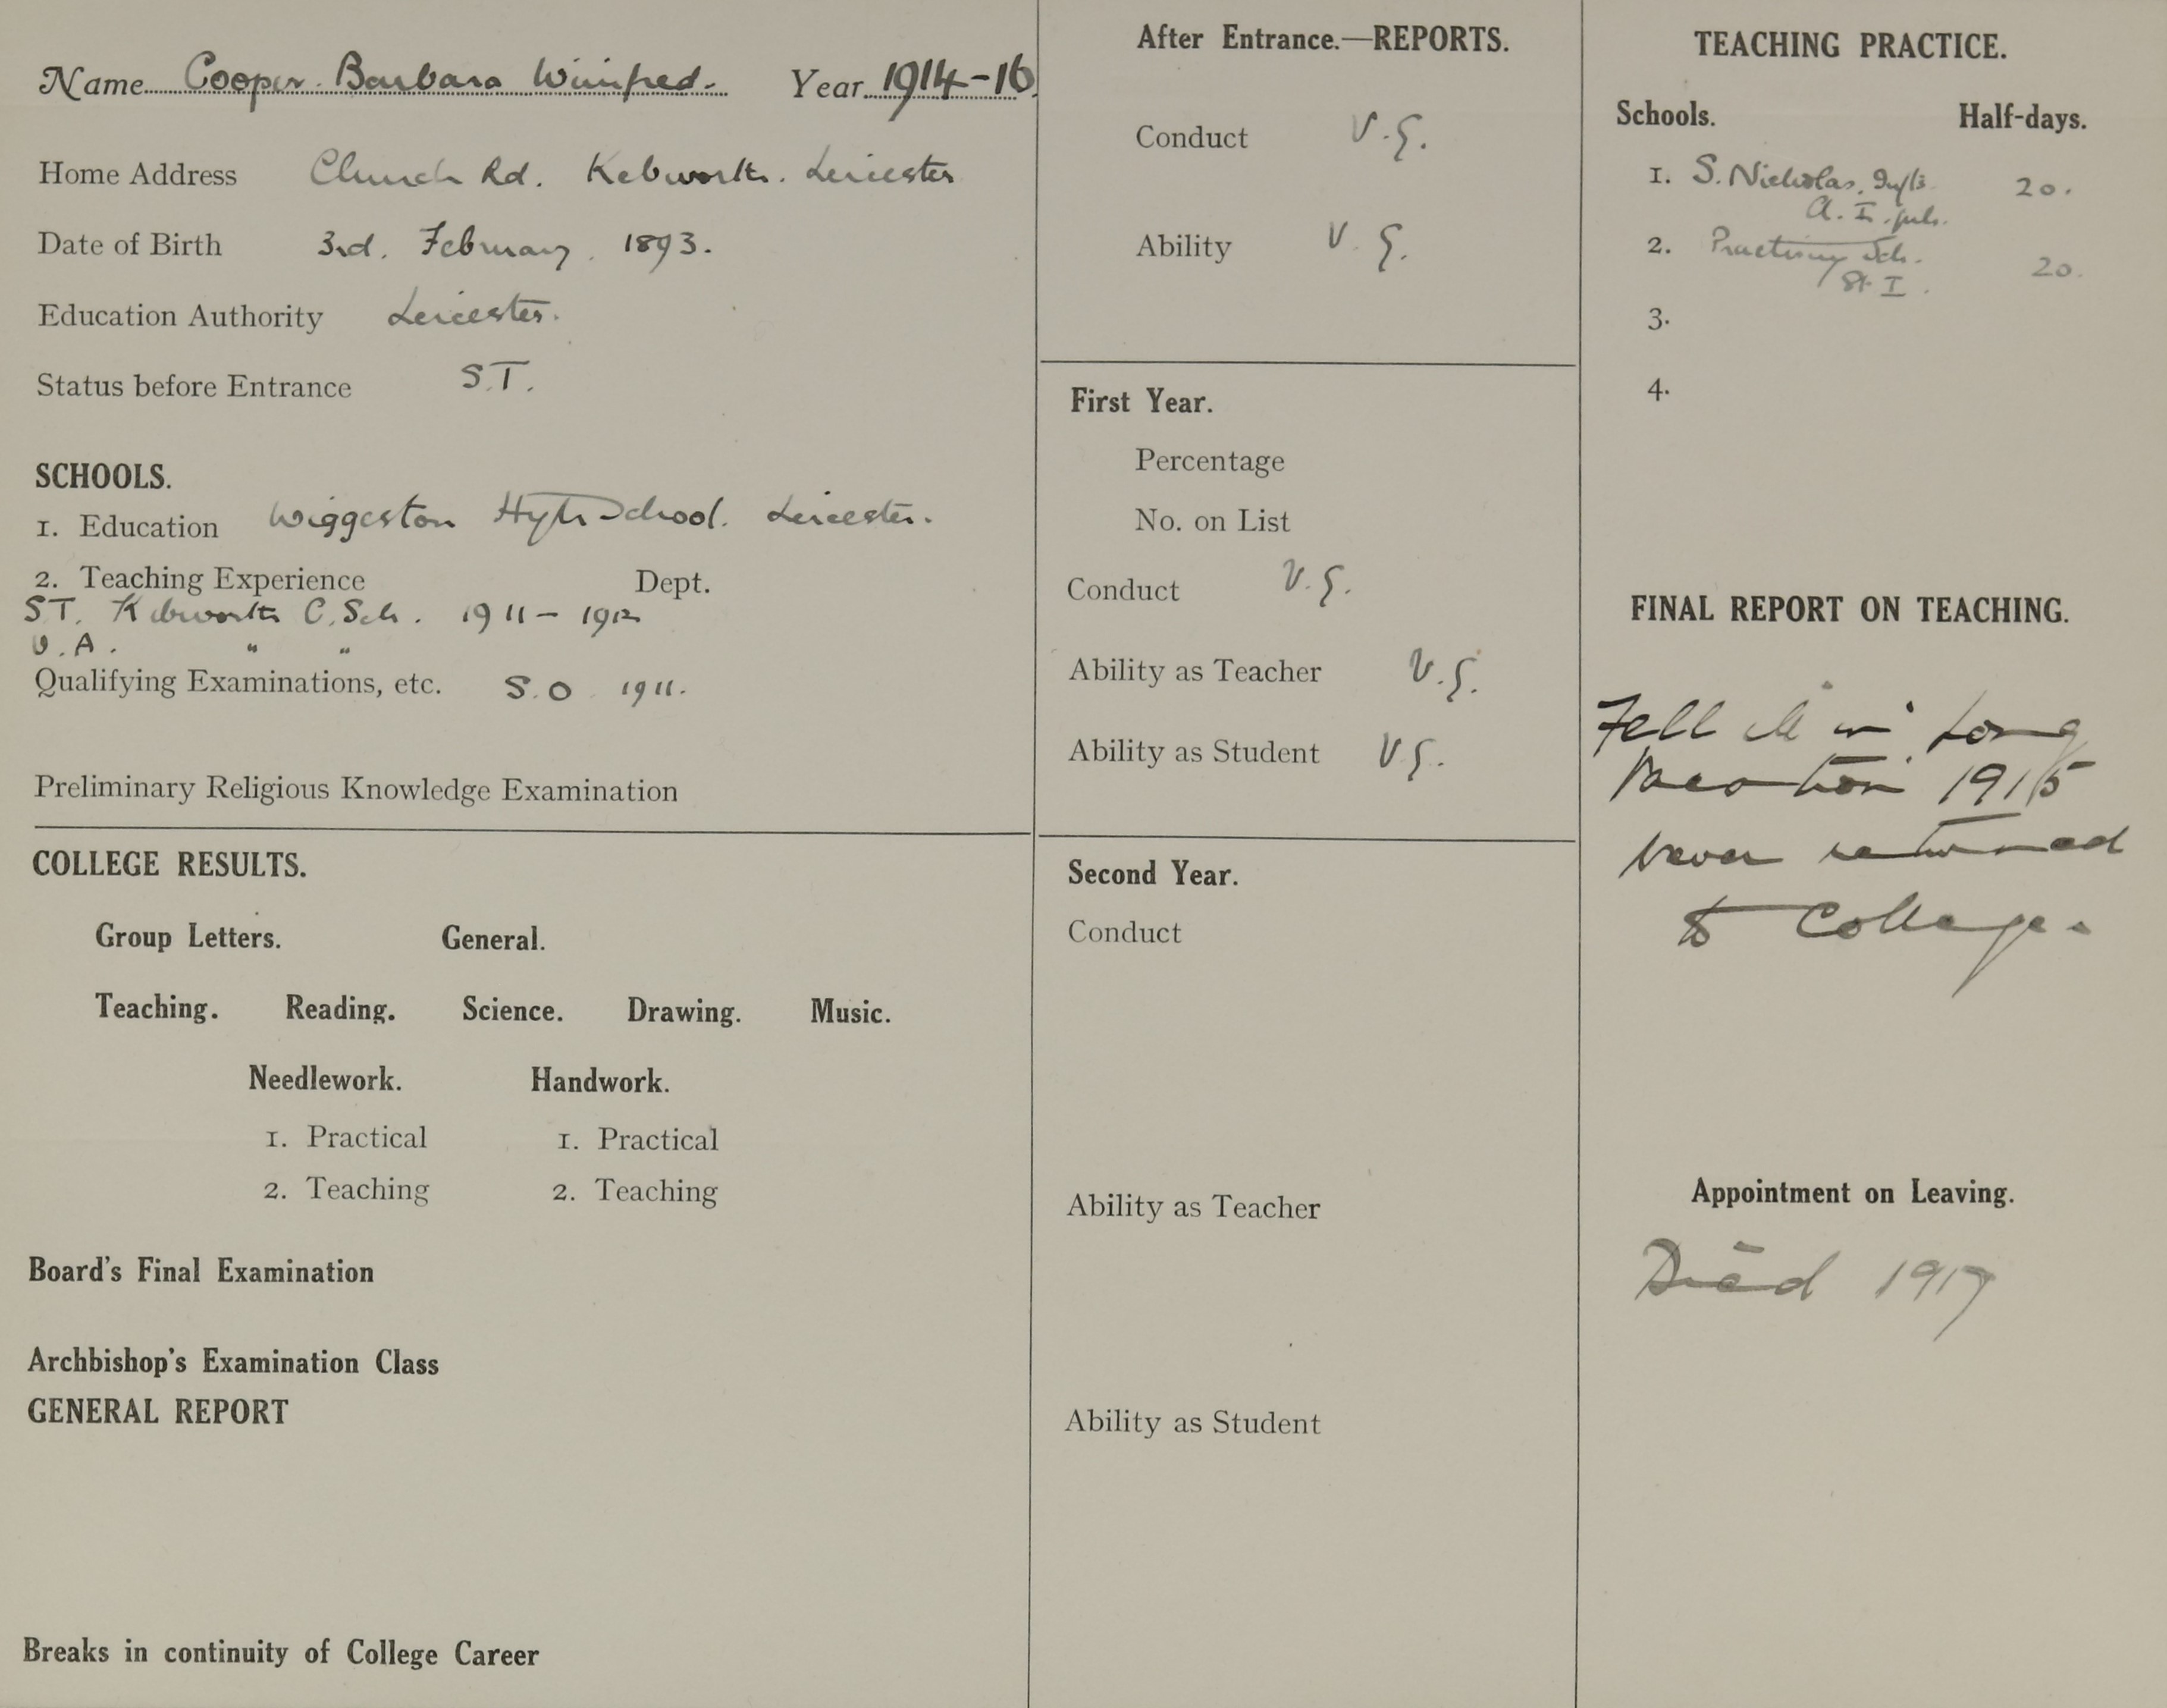 Name Cooper. Barbara Winifred. Year 1914-16.
Home Address Church Rd. Kebworth. Leicester
Date of Birth 3rd. February. 1893.
Education Authority Leicester.
Status before Entrance S.T.
SCHOOLS.
1. Education Wiggeston High School. Leicester.
2. Teaching Experience Dept.
S.T. Kibworth C. Sch. 1911 - 1912
U.A. " "
Qualifying Examinations, etc. S.O 1911.
Preliminary Religious Knowledge Examination
COLLEGE RESULTS.
Group Letters. General.
Teaching. Reading. Science. Drawing. Music.
Needlework. Handwork.
1. Practical 1. Practical
2. Teaching 2. Teaching
Board's Final Examination
Archbishop's Examination Class
GENERAL REPORT
Breaks in continuity of College Career
After Entrance.—REPORTS.
Conduct V.G.
Ability V.G.
First Year.
Percentage
No. on List
Conduct V.G.
Ability as Teacher V.G.
Ability as Student V.G.
Second Year.
Conduct
Ability as Teacher
Ability as Student
TEACHING PRACTICE.
Schools. Half-days.
1. S. Nicholas. Infts. 20.
2. Practising Sch. 20.
St. I.
3.
4.
FINAL REPORT ON TEACHING.
Fell ill in Long
Vacation 1915
Never returned
to College.
Appointment on Leaving.
Died 1917